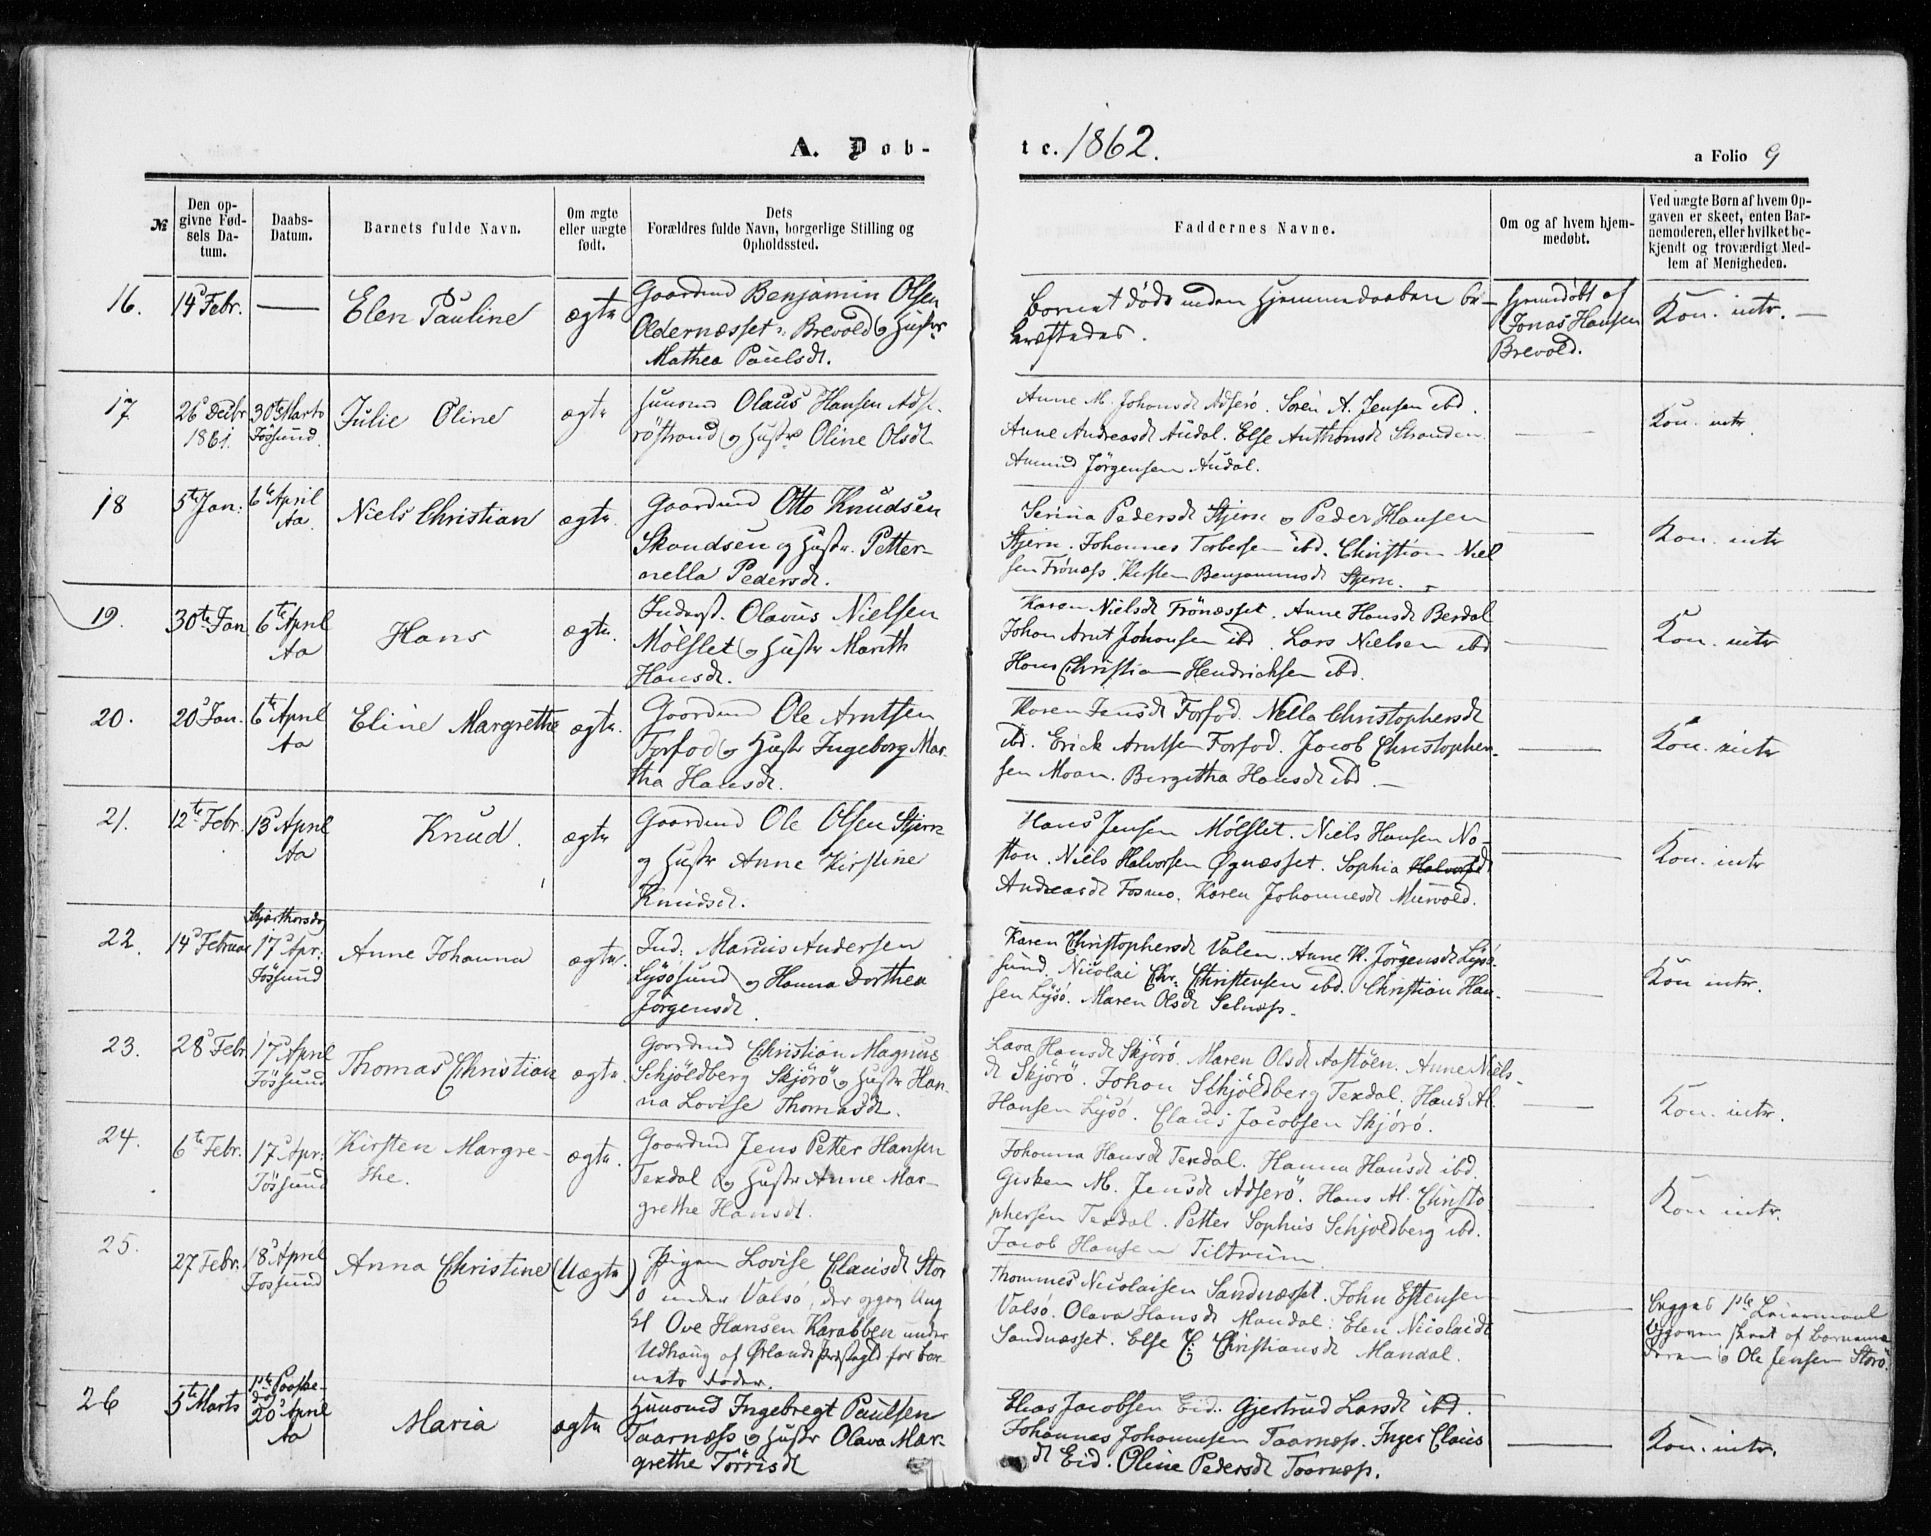 A. Døb-
te. 1862.
a Folio 9
№
Den op-
givne Fød-
sels Da-
tum.
Daabs-
Datum.
Barnets fulde Navn.
Om ægte
eller uægte
født.
Dets
Forældres fulde Navn, borgerlige Stilling og
Opholdssted.
Faddernes Navne.
Om og af hvem hjem-
medøbt.
Ved uægte Børn af hvem Op-
gaven er skeet, enten Bar-
nemoderen, eller hvilket be-
kjendt og troværdigt Med-
lem af Menigheden.
16.
14 Febr.
Elen Pauline
ægte
Gaardmd Benjamin Olsen
Oldernæsset Brevold og Hustr
Mathea Paulsdt.
Barnet døde inden Hjemmedaaben be-
kræftedes.
hjemdøbt af
Jonas Hansen
Brevold.
Kon. intr.
17
26 Decbr
1861.
30te Marts
Jøssund
Julie Oline
ægte
Huusmd Olaus Hansen Adse-
röstrand og Hustr Oline Olsdt
Anne M. Johansdt Adserö. Sören A. Jensen ibd.
Anne Andreasdt Audal. Else Anthonsdt Stranden.
Amund Jörgensen Audal.
Kon. intr.
18
5te Jan:
6te April
Aa.
Niels Christian
ægte.
Gaardmd Otto Knudsen
Skandsen og Hustr. Petter-
nella Pedersdt.
Serina Pedersdt Stjern og Peder Hansen
Stjern. Johannes Torbersen ibd. Christian Niel
sen Frönæss. Kirsten Benjaminsdt Stjern.
Kon. intr
19.
30te Jan
6te April
Aa
Hans
ægte.
Inderst. Olavus Nielsen
Mölslet og Hustr Marith
Hansdt.
Karen Nielsdt Frönæsset. Anne Hansdt Berdal
Johan Arnt Johansen ibd. Lars Nielsen ibd
Hans Christian Hendrichsen ibd.
Kon. intr
20.
20 Jan.
6te April
Aa
Eline Margrethe
ægte.
Gaardmd Ole Arntsen
Forfod og Hustr Ingeborg Mar-
tha Hansdt.
Karen Jensdt Forfod. Nella Christophersdt
ibd. Erick Arntsen Forfod. Jacob Christopher-
sen Moan. Bergitha Hansdt ibd.
Kon. intr
21.
12te Febr.
13 April
Aa
Knud.
ægte
Gaardmd Ole Olsen Stjern
og Hustr Anne Kirstine
Knudsdt.
Hans Jensen Mölslet. Niels Hansen No-
ston. Niels Halvorsen Øynæsset. Sophia Halvorsdt
Andreasdt Fosmo. Karen Johannesdt Murvold.
Kon. intr
22.
14 Februar
Skjærthorsdag
17 Apr:
Jössund
Anne Johanna
ægte.
Ind: Marius Andersen
Lysösund og Hanna Dorthea
Jörgensdt.
Karen Christophersdt Valen. Anne K. Jörgensdt Lysö-
sund. Nicolai Chr. Christensen ibd. Christian Han-
sen Lysö. Maren Olsdt Selnæss.
Kon intr.
23.
28 Febr
17 April
Jössund
Thomas Christian
ægte.
Gaardmd Christian Magnus
Schjöldberg Skjörö og Hustr Han-
na Lovise Thomasdt.
Lava Hansdt Skjörö. Maren Olsdt Aastöen. Anne Niels-
dt Skjörö. Johan Schjöldberg Texdal. Hans Al.
Hansen Lysö. Claus Jacobsen Skjörö.
Kon. intr.
24.
6te Febr.
17 Apr:
Jössund
Kirsten Margre-
the.
ægte.
Gaardmd Jens Petter Hansen
Texdal og Hustr Anne Mar-
grethe Hansdt.
Johanna Hansdt Texdal. Hanna Hansdt ibd.
Gisken M. Jensdt Adserö. Hans M. Christo
phersen Texdal. Petter Sophus Schjöldberg ibd.
Jacob Hansen Tiltrum
Kon intr.
25.
27 Febr.
18 April
Jossund
Anna Christine
(Uægte)
Pigen Lovise Clausdt Stor
ö under Valsö, der opgav Ung
kl Ove Hansen Karabben under
Udhaug af Ørlands Præstegld for bar-
nets Fader.
Thommes Nicolaisen Sandnæsset. John Estensen
Valsö. Olava Hansdt Mandal. Elen Nicolaidt
Sandnæsset. Else C. Christiansdt Mandal.
begges 1ste Leiermaal
Opgaven skeet af Barnemo
deren og Ole Jensen Storö.
26
5te Marts
1ste Paaske-
dag
20 April
Aa
Maria
ægte
Huusmd Ingebregt Paulsen
Taarnæss og Hustr Olava Mar-
grethe Törrisdt
Elias Jacobsen Eid. Gjertrud Larsdt ibd.
Johannes Johannesen Taarnæss. Inger Claus
dt Eid. Oline Pedersdt Taarnæss.
Kon. intr.